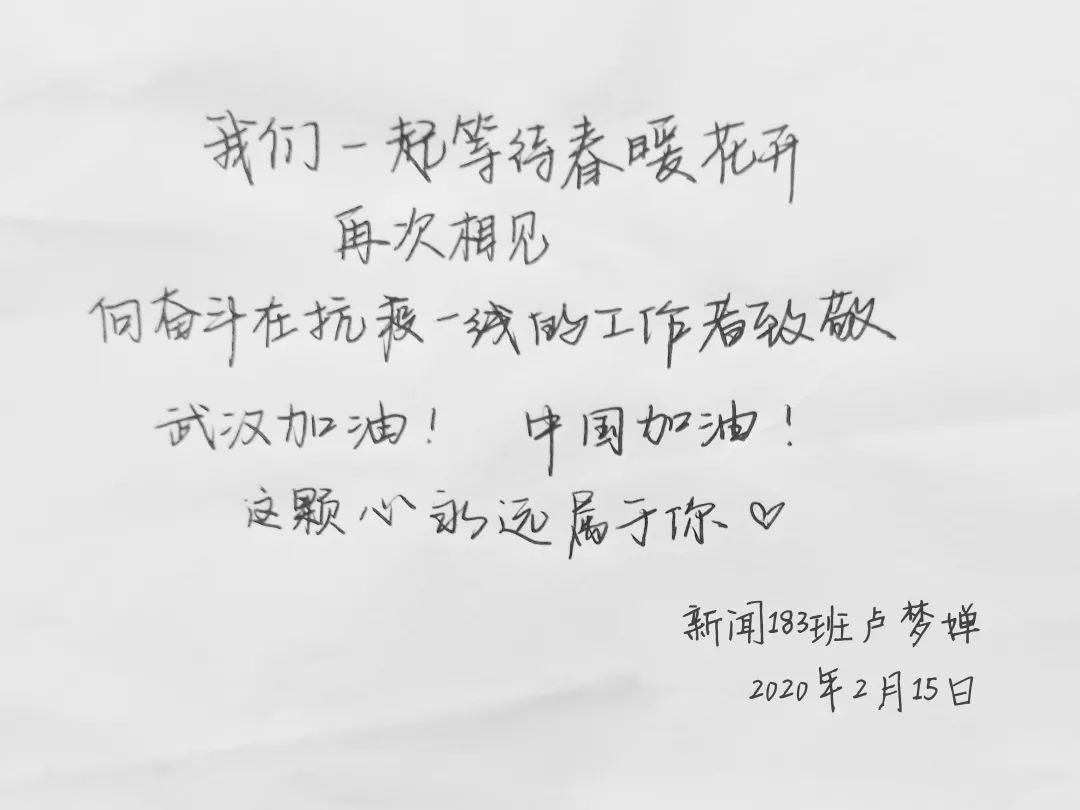 我们一起等待春暖花开
再次相见
向奋斗在抗疫一线的工作者致敬
武汉加油! 中国加油!
这颗心永远属于你♡
新闻183班卢梦婵
2020年2月15日